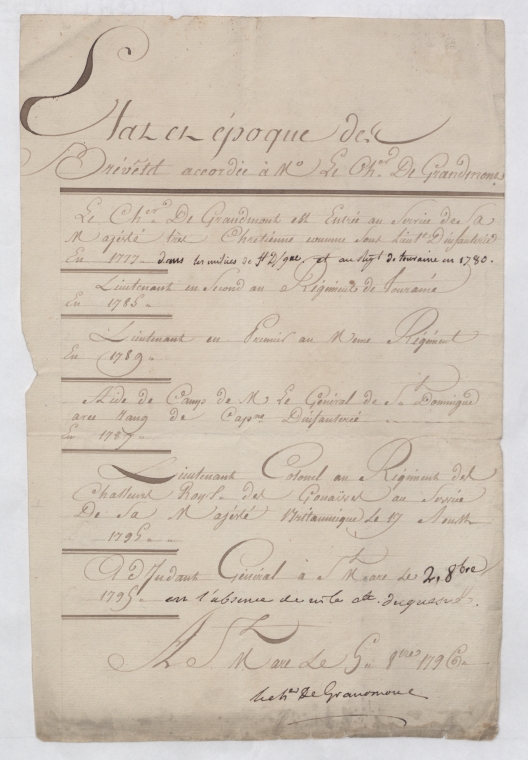 Etat et époque des
Brévêtt accordée à Mr. Le Cher. De Grandmont
Le Cher. De Grandmont est Entrée au Service de Sa
Majésté très Chretiénne comme Sous Lieutt. D'infanterie
En 1777. dans les milices de St D/gue. et au Rgt. de touraine en 1780.
Lieutenant en Second au Régiment de Touraine
En 1785.
Lieutenant en Premier au Meme Regiment
En 1789.
Aide de Camp de M. Le Général de St. Domingue
avec Rang de Capne. D'infanterie
En 1787.
Lieutenant Colonel au Régiment des
Chasseurs Royl. des Gonaïves au Service
De Sa Majésté Britannique Le 17
1795.
Adjudant Général à St. Marc Le 2, 8bre
1795. en l'absence de
A St. Marc Le 5. 1796.
Le cher. De Grandmont